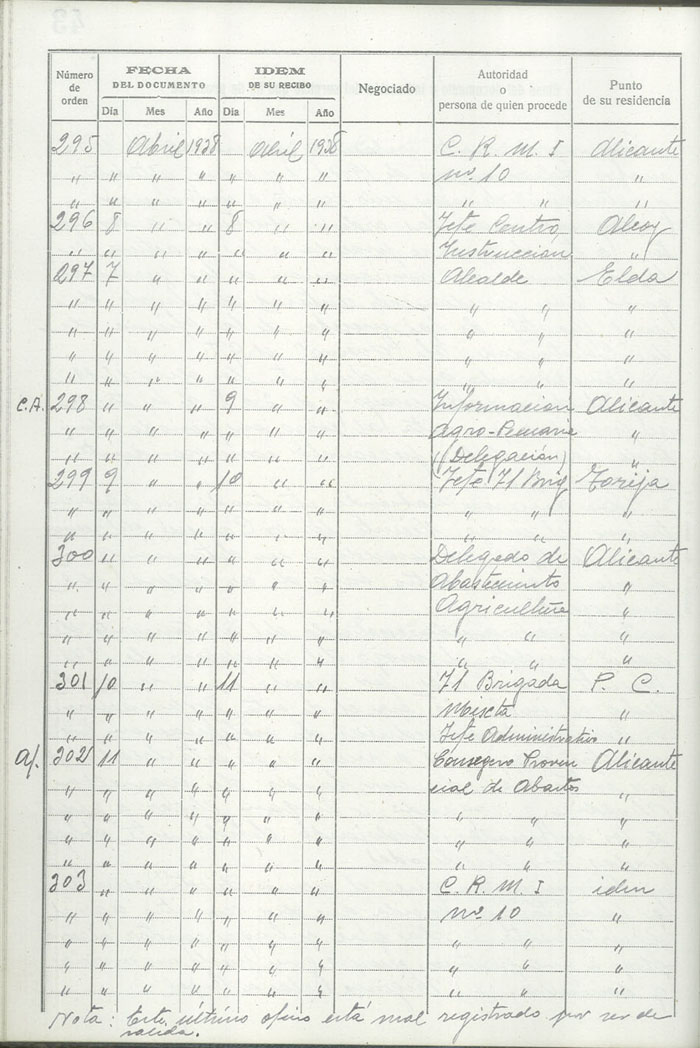 Número de orden | FECHA DEL DOCUMENTO | IDEM DE SU RECIBO | Negociado | Autoridad o persona de quien procede | Punto de su residencia
Día | Mes | Año | Día | Mes | Año
295 Abril 1938 Abril 1938 C. R. M. I Alicante
" " " " " " " nº 10 "
" " " " " " " " " "
296 8 " " 8 " " Jefe Centro Alcoy
" " " " " " " Instruccion "
297 7 " " " " " Alcalde Elda
" " " " " " " " " "
" " " " " " " " " "
" " " " " " " " " "
" " " " " " " " "
C.A. 298 " " " 9 " " Informacion Alicante
" " " " " " " Agro-Pecuaria "
" " " " " " " (Delegacion) "
299 9 " " 10 " " Jefe 71 Brig Torija
" " " " " " " " " "
" " " " " " " " " "
300 " " " " " " Delegado de Alicante
" " " " " " " Abastecimto "
" " " " " " " Agricultura "
" " " " " " " " " "
" " " " " " " " " "
301 10 " " 11 " " 71 Brigada P. C.
" " " " " " " Mixta "
" " " " " " " Jefe Administrativo "
A/. 302 11 " " " " " Consegero Provin Alicante
" " " " " " " cial de Abastos "
" " " " " " " " " "
" " " " " " " " " "
" " " " " " " " " "
303 " " " " " " C. R. M. I idem
" " " " " " " nº 10 "
" " " " " " " " " "
" " " " " " " " " "
" " " " " " " " " "
Nota: Este último oficio está mal registrado por ser de
salida.